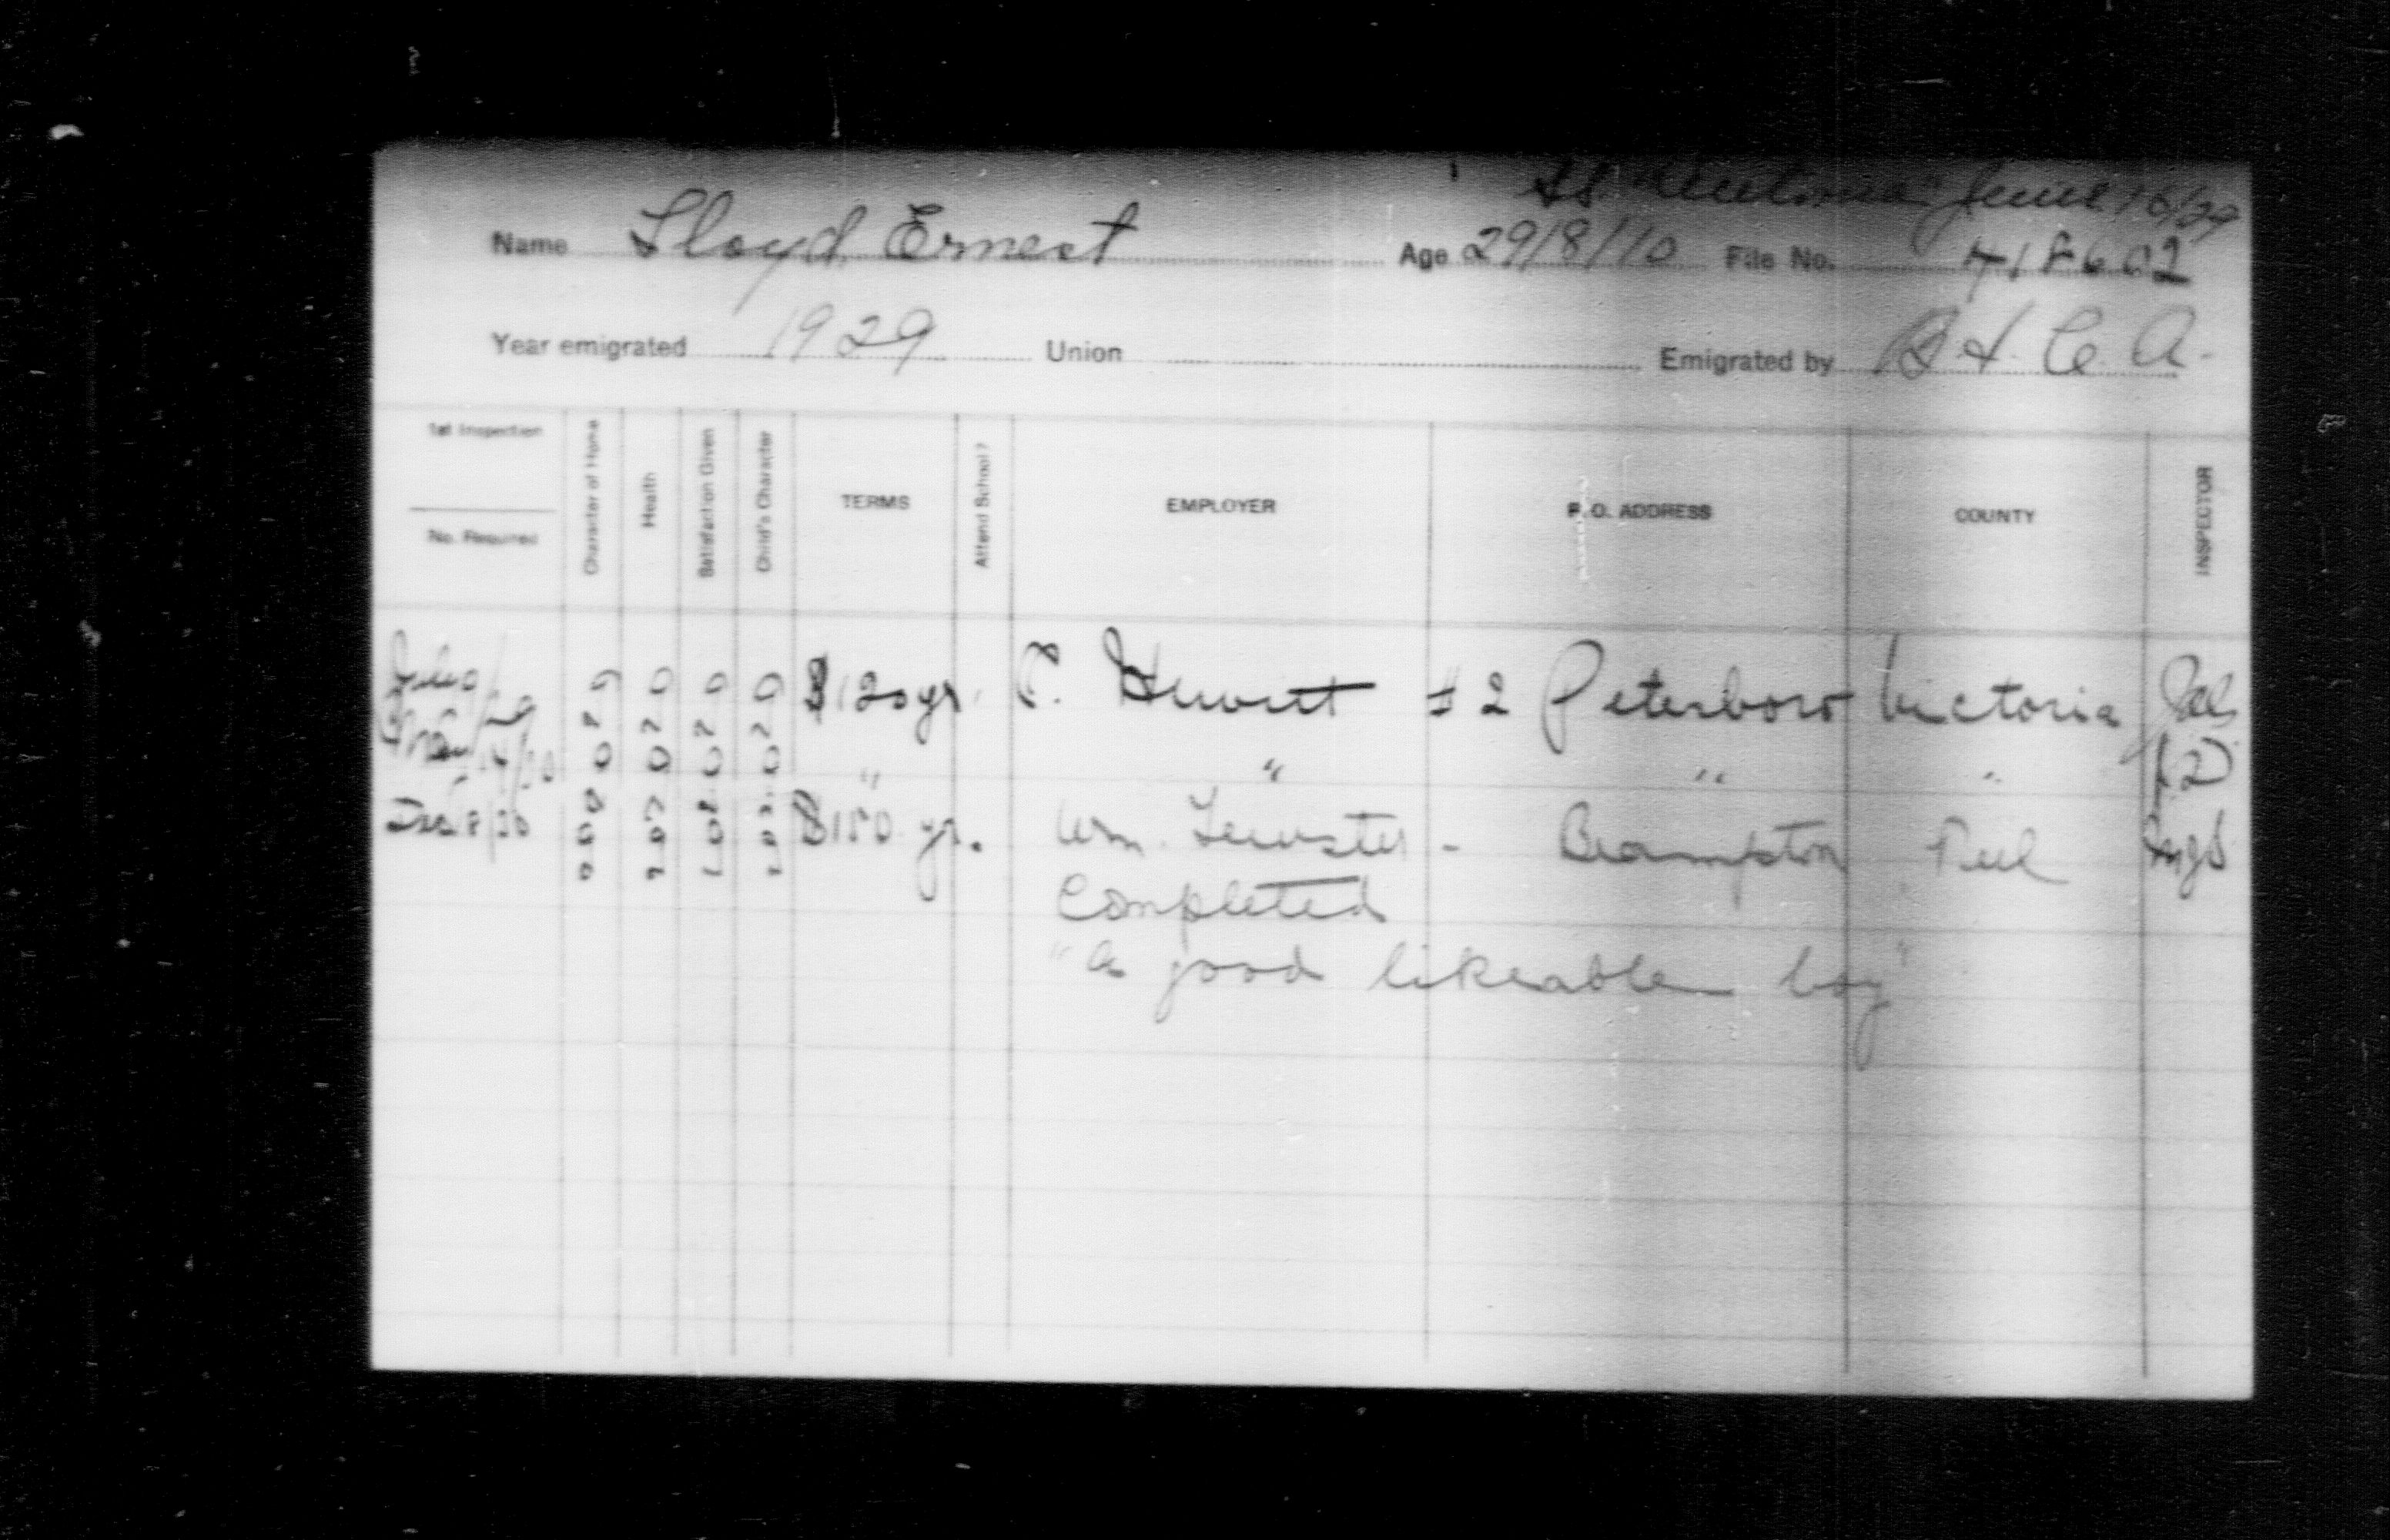 SS "Letitia" June 15/29
Name Lloyd Ernest Age 29/8/10 File No. 418602
Year emigrated 1929 Union Emigrated by B.I.C.A.
1st Inspection
No. Required
Character of Home
Health
Satisfaction Given
Child's Character
TERMS
Attend School?
EMPLOYER
P.O. ADDRESS
COUNTY
INSPECTOR
$120 yr. Hewitt #2 Peterboro Victoria
" " " " (2)
Dec 8/30 $150 yr. Wm. - Brampton Peel
Completed
"a good likeable boy"